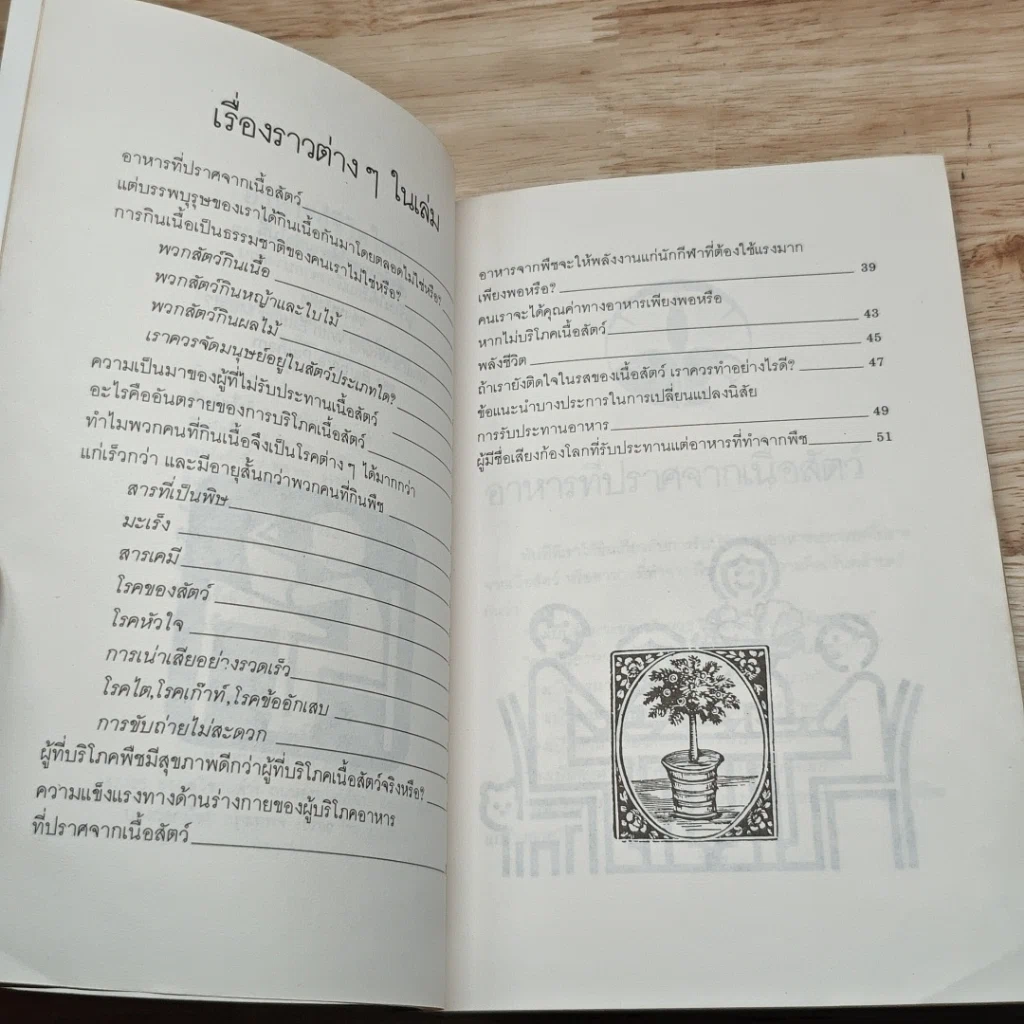 เรื่องราวต่าง ๆ ในเล่ม
อาหารที่ปราศจากเนื้อสัตว์
แต่บรรพบุรุษของเราได้กินเนื้อกันมาโดยตลอดไม่ใช่หรือ?
การกินเนื้อเป็นธรรมชาติของคนเราไม่ใช่หรือ?
พวกสัตว์กินเนื้อ
พวกสัตว์กินหญ้าและใบไม้
พวกสัตว์กินผลไม้
เราควรจัดมนุษย์อยู่ในสัตว์ประเภทใด?
ความเป็นมาของผู้ที่ไม่รับประทานเนื้อสัตว์
อะไรคืออันตรายของการบริโภคเนื้อสัตว์
ทำไมพวกคนที่กินเนื้อจึงเป็นโรคต่าง ๆ ได้มากกว่า
แก่เร็วกว่า และมีอายุสั้นกว่าพวกคนที่กินพืช
สารที่เป็นพิษ
มะเร็ง
สารเคมี
โรคของสัตว์
โรคหัวใจ
การเน่าเสียอย่างรวดเร็ว
โรคไต,โรคเก๊าท์,โรคข้ออักเสบ
การขับถ่ายไม่สะดวก
ผู้ที่บริโภคพืชมีสุขภาพดีกว่าผู้ที่บริโภคเนื้อสัตว์จริงหรือ?
ความแข็งแรงทางด้านร่างกายของผู้บริโภคอาหาร
ที่ปราศจากเนื้อสัตว์
อาหารจากพืชจะให้พลังงานแก่นักกีฬาที่ต้องใช้แรงมาก
เพียงพอหรือ? 39
คนเราจะได้คุณค่าทางอาหารเพียงพอหรือ
หากไม่บริโภคเนื้อสัตว์ 43
พลังชีวิต 45
ถ้าเรายังติดใจในรสของเนื้อสัตว์ เราควรทำอย่างไรดี? 47
ข้อแนะนำบางประการในการเปลี่ยนแปลงนิสัย
การรับประทานอาหาร 49
ผู้มีชื่อเสียงก้องโลกที่รับประทานแต่อาหารที่ทำจากพืช 51
อาหารที่ปราศจากเนื้อสัตว์